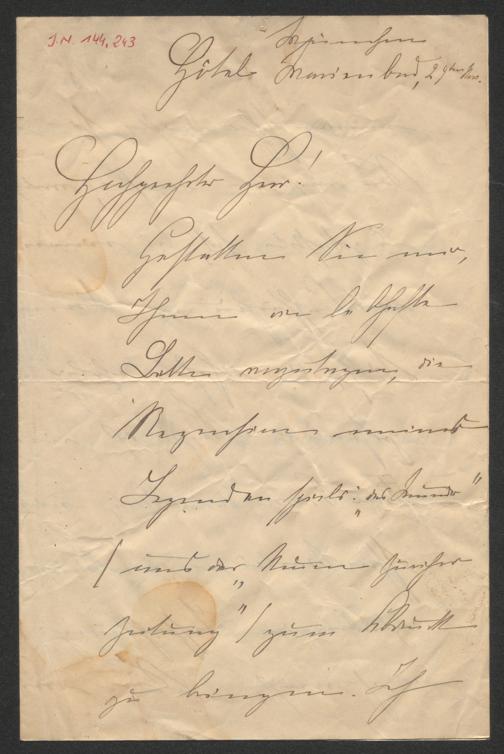 J.N. 144.243
München
Hôtel Marienbad, 29ten Nov.
Hochgeehrter Herr!
Gestatten Sie mir,
Ihnen die lebhafte
Bitte vorzulegen, die
Rezension meines
Legendenspiels: „das Wunder"
/ aus der „Neuen Züricher
Zeitung" / zum Abdruck
zu bringen. Ich